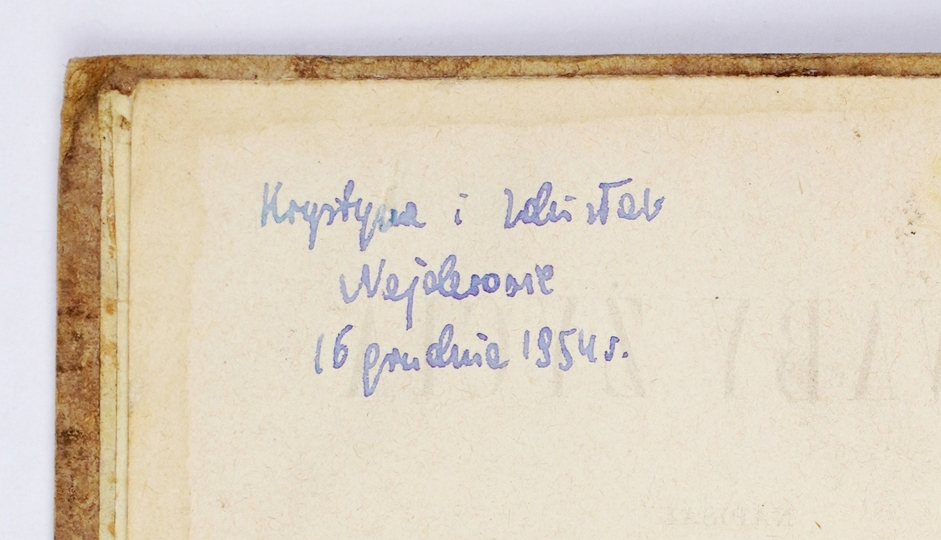 Krystyna i Zdzisław
Najderowie
16 grudnia 1954 r.